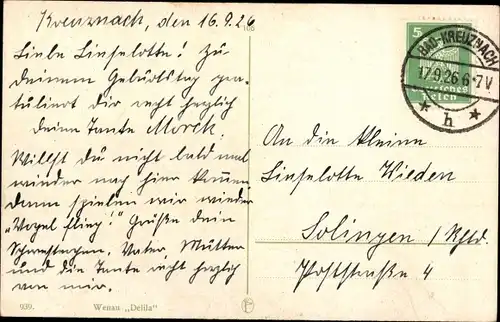 Kreuznach, den 16.9.26
108
Liebe Linselotte! Zu
deinem Geburtstag gra-
tuliert dir recht herzlich
deine Tante Morch.
Willst du nicht bald mal
wieder nach hier kommen
dann spielen wir wieder
„Vogel flieg!" Grüße dein
Schwesterchen, Vater, Mutter
und die Tante recht herzlich
von mir.
939. Wenau „Delila"
5
Deutsches
Reich
BAD-KREUZNACH
17.9.26.6-7V
* h *
An die kleine
Linselotte Wieden
Solingen / Rhld.
Poststraße 4